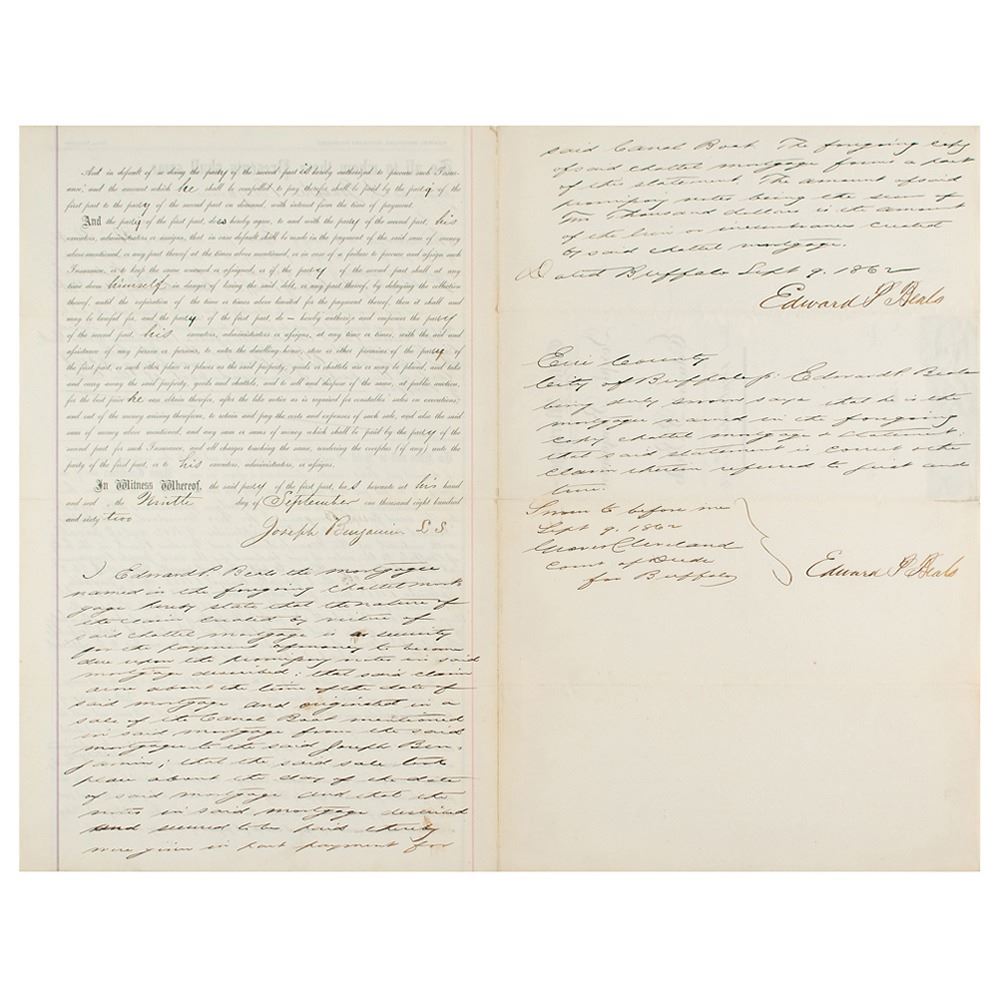 And in default of so doing the party of the second part is hereby authorized to procure such Insur-
ance; and the amount which he shall be compelled to pay therefor shall be paid by the party of the
first part to the party of the second part on demand, with interest from the time of payment.
And the party of the first part, does hereby agree, to and with the party of the second part, his
executors, administrators or assigns, that in case default shall be made in the payment of the said sum of money
above mentioned, or any part thereof at the times above mentioned, or in case of a failure to procure and assign such
Insurance, or to keep the same renewed or assigned, or if the party of the second part shall at any
time deem himself in danger of losing the said debt, or any part thereof, by delaying the collection
thereof, until the expiration of the time or times above limited for the payment thereof, then it shall and
may be lawful for, and the party of the first part, do – hereby authorize and empower the party
of the second part, his executors, administrators or assigns, at any time or times, with the aid and
assistance of any person or persons, to enter the dwelling-house, store or other premises of the party of
the first part, or such other place or places as the said property, goods or chattels are or may be placed, and take
and carry away the said property, goods and chattels, and to sell and dispose of the same, at public auction,
for the best price he can obtain therefor, after the like notice as is required for constables' sales on executions;
and out of the money arising therefrom, to retain and pay the costs and expenses of such sale, and also the said
sum of money above mentioned, and any sum or sums of money which shall be paid by the party of the
second part for such Insurance, and all charges touching the same, rendering the overplus (if any) unto the
party of the first part, or to his executors, administrators, or assigns.
In Witness Whereof, the said party of the first part, has hereunto set his hand
and seal, the Ninth day of September one thousand eight hundred
and sixty two
Joseph Benjamin L S
I Edward P. Beals the mortgagee
named in the foregoing chattel mort-
gage hereby state that the nature of
the claim created by virtue of
said chattel mortgage is as security
for the payment of money to become
due upon the promissory notes in said
mortgage described: that said claim
arose about the time of the date of
said mortgage and originated in a
sale of the Canal Boat mentioned
in said mortgage from the said
mortgagee to the said Joseph Ben-
jamin; that the said sale took
place about the day of the date
of said mortgage and that the
notes in said mortgage described
and secured to be paid thereby
were given in part payment for
said Canal Boat. The foregoing copy
of said chattel mortgage forms a part
of this statement. The amount of said
promissory notes being the sum of
Ten Thousand dollars is the amount
of the lien or incumbrance created
by said chattel mortgage.
Dated Buffalo Sept 9. 1862
Edward P. Beals
Erie County
City of Buffalo ss: Edward P. Beals
being duly sworn says that he is the
mortgagee named in the foregoing
copy chattel mortgage & statement;
that said statement is correct & the
claim therein referred to just and
true.
Sworn to before me
Sept 9. 1862
Grover Cleveland
Com of Deeds
for Buffalo
Edward P. Beals